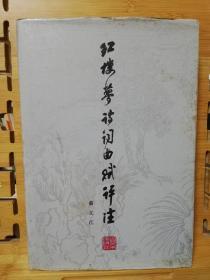 红楼夢诗词曲赋评注
蔡义江